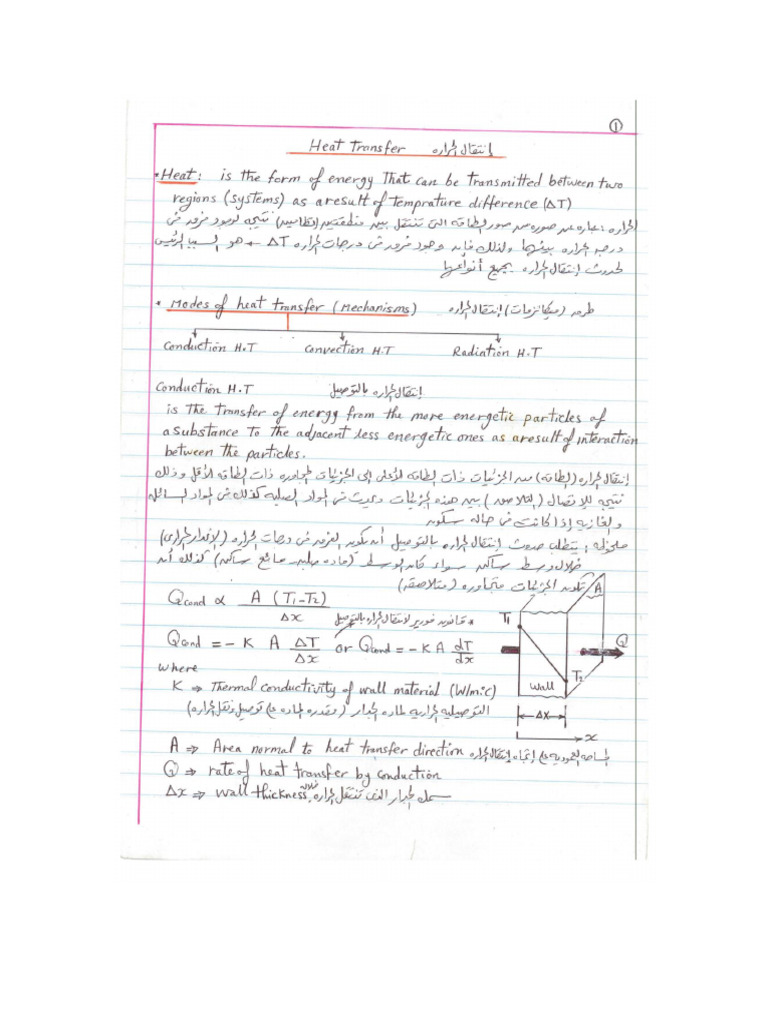 ①
Heat Transfer إنتقال الحراره
• Heat: is the form of energy That can be transmitted between two
regions (systems) as a result of temprature difference (ΔT)
الحراره: عباره عن صوره من صور الطاقه التى تنتقل بين منطقتين (نظامين) نتيجه لوجود فرق فى
درجه الحراره بينهما ولذلك فإن وجود فرق فى درجات الحراره ΔT ← هو السبب الرئيسى
لحدوث إنتقال الحراره بجميع أنواعها
• Modes of heat transfer (Mechanisms) طرق (ميكانزمات) إنتقال الحراره
Conduction H.T Convection H.T Radiation H.T
Conduction H.T إنتقال الحراره بالتوصيل
is the transfer of energy from the more energetic particles of
a substance to the adjacent less energetic ones as a result of interaction
between the particles.
إنتقال الحراره (الطاقه) من الجزئيات ذات الطاقه الأعلى الى الجزئيات المجاوره ذات الطاقه الأقل وذلك
نتيجه للإتصال (التلاصق) بين هذه الجزئيات ويحدث فى المواد الصلبه كذلك فى المواد السائله
والغازيه إذا كانت فى حاله سكون
ملحوظه: يتطلب حدوث إنتقال الحراره بالتوصيل أن يكون الفرق فى درجات الحراره (الإنحدار الحرارى)
خلال وسط ساكن سواء كان الوسط (ماده صلبه - مائع ساكن) كذلك أن
تكون الجزئيات متجاوره (متلاصقه)
Qcond ∝ A (T₁-T₂) / Δx
* قانون فورير لانتقال الحراره بالتوصيل
Qcond = - K A ΔT/Δx or Qcond = - K A dT/dx
where
K ⇒ Thermal conductivity of wall material (W/m.°c)
التوصيليه الحراريه لماده الجدار (مقدره الماده على توصيل ونقل الحراره)
A ⇒ Area normal to heat transfer direction المساحه العموديه على إتجاه إنتقال الحراره
Q ⇒ rate of heat transfer by conduction
Δx ⇒ wall thickness سمك الجدار الذى تنتقل خلاله الحراره
A
T₁
Q
T₂
Wall
Δx
x